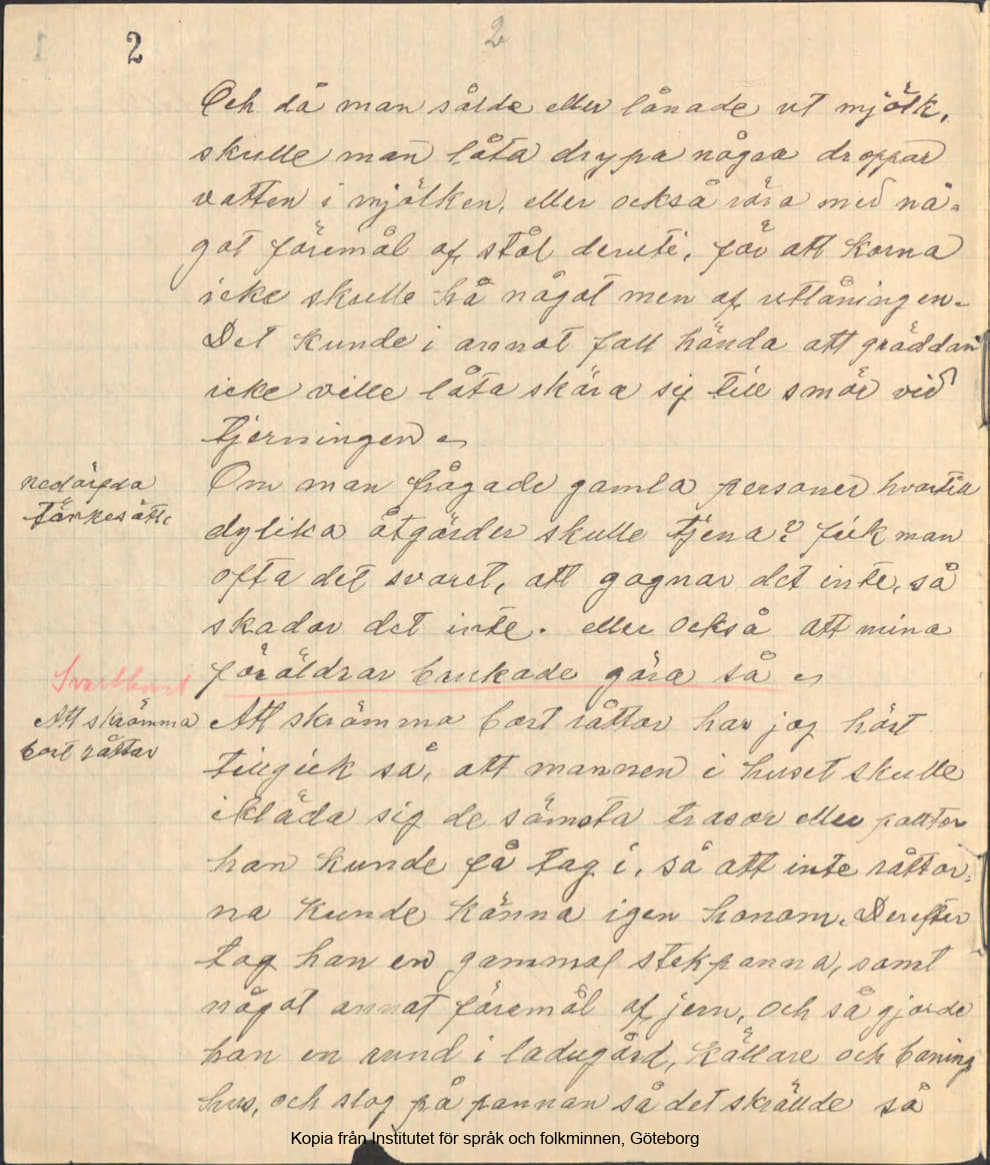 2
2
Och då man sålde eller lånade ut mjölk,
skulle man låta drypa några droppar
vatten i mjölken, eller också röra med nå-
got föremål af stål deruti, för att korna
icke skulle få något men af utlåningen.
Det kunde i annat fall hända att gräddan
icke ville låta skära sig till smör vid
tjerningen
nedärfda
tänkesätt
Om man frågade gamla personer hvartill
dylika åtgärder skulle tjena? fick man
ofta det svaret, att gagnar det inte, så
skadar det inte. eller också att mina
föräldrar brukade göra så
Att skrämma
bort råttor
Att skrämma bort råttor har jag hört
tillgick så, att mannen i huset skulle
ikläda sig de sämsta trasor eller palltor
han kunde få tag i, så att inte råttor-
na kunde känna igen honom. Derefter
tog han en gammal stekpanna, samt
något annat föremål af jern, och så gjorde
han en rund i ladugård, källare och boning
hus, och slog på pannan så det skrällde så
Kopia från Institutet för språk och folkminnen, Göteborg